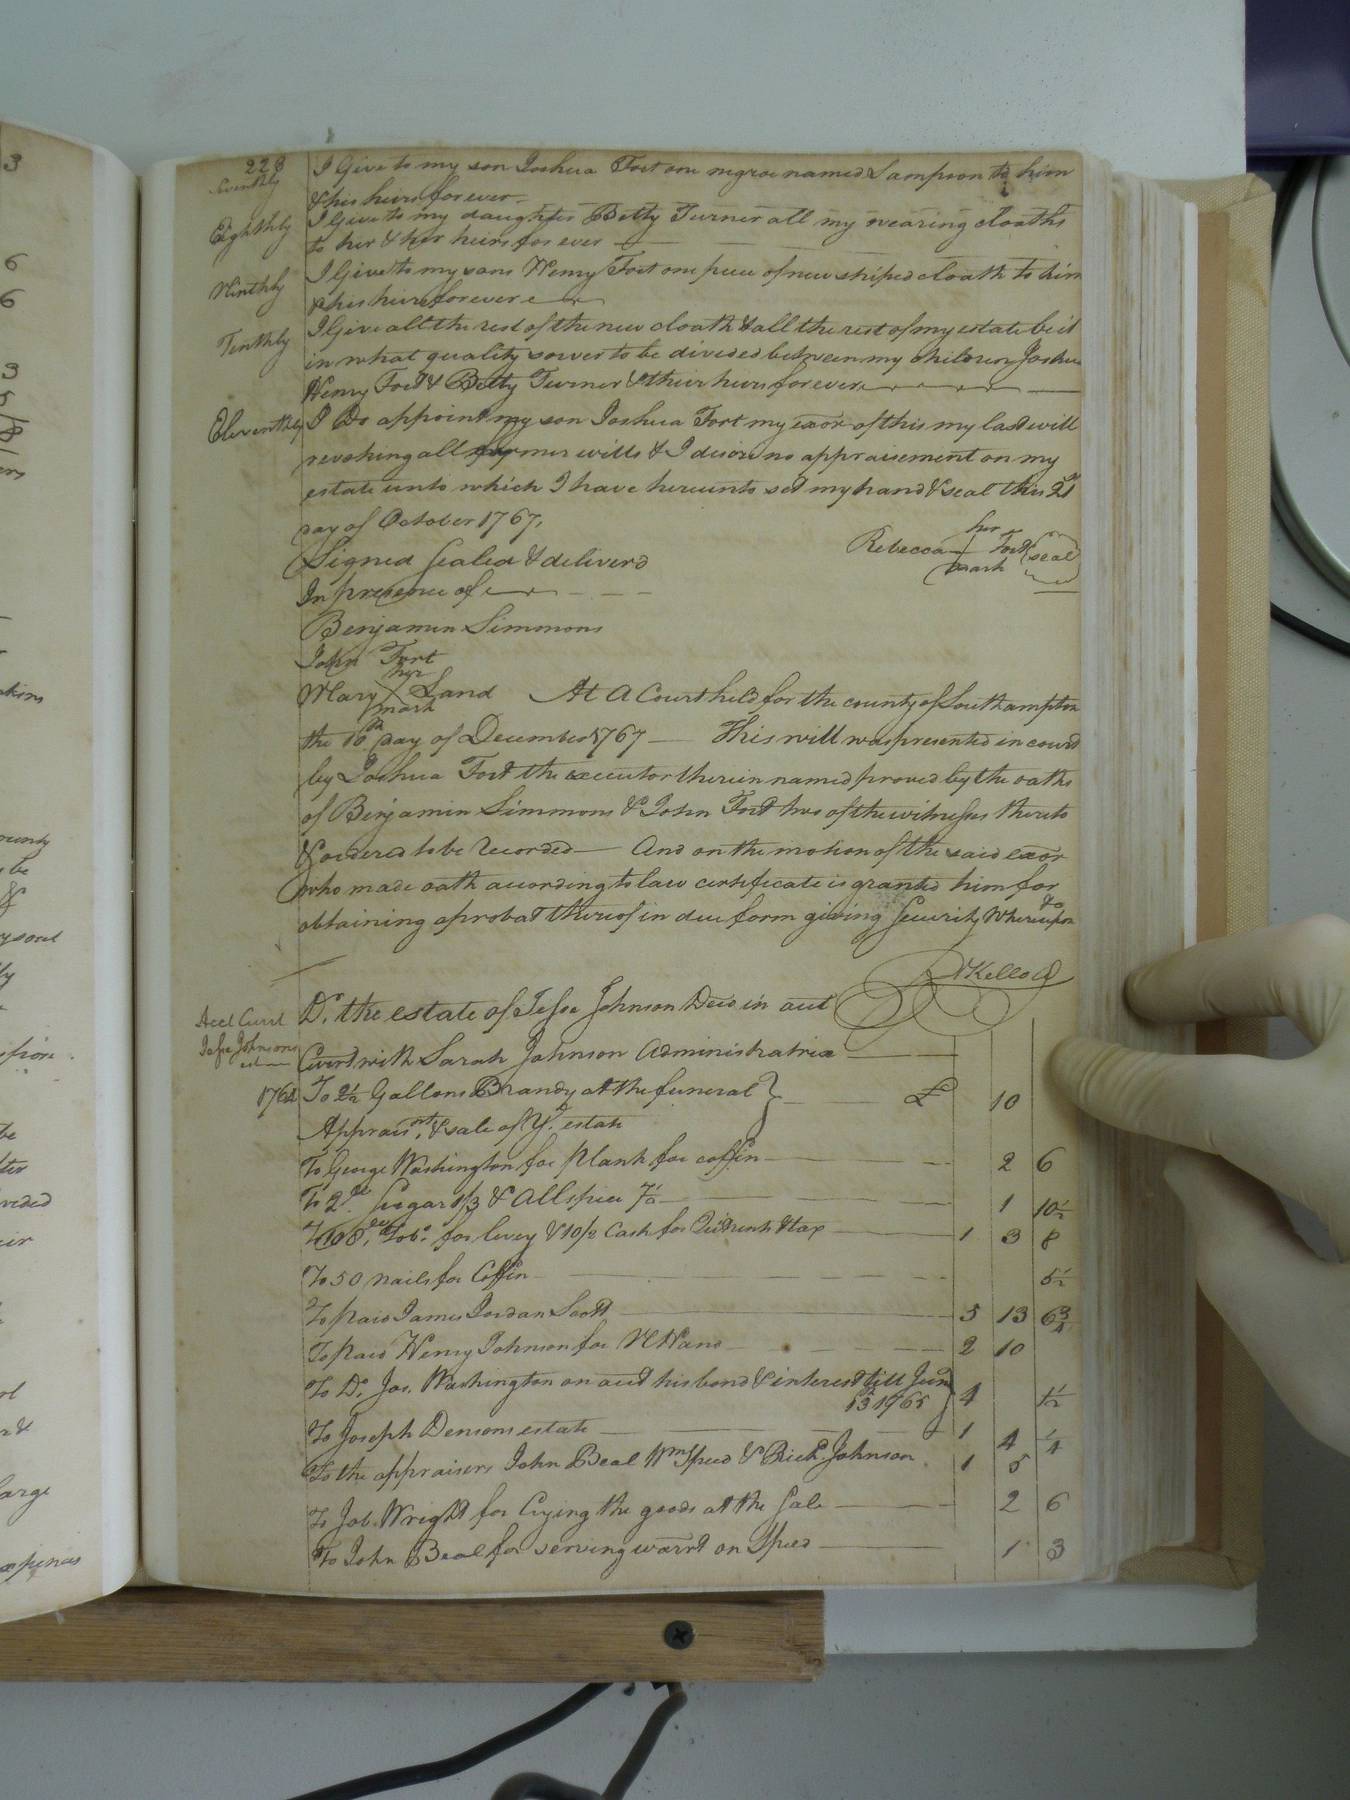 228
Seventhly I Give to my son Joshua Fort one negroe named Sampson to him
& his heirs forever
Eighthly I Give to my daughter Betty Turner all my wearing cloaths
to her & her heirs for ever
Ninthly I Give to my sons Henry Fort one piece of new striped cloath to him
& his heirs forever
Tenthly I Give all the rest of the new cloath & all the rest of my estate be it
in what quality soever to be divided between my children Joshua
Henry Fort & Betty Turner & their heirs forever
Eleventhly I Do appoint my son Joshua Fort my exor of this my last will
revoking all former wills & I desire no appraisement on my
estate unto which I have hereunto set my hand & seal this 21st
day of October 1767.
her
Rebecca Fort (seal)
mark
Signed Sealed & deliverd
In presence of
Benjamin Simmons
John Fort
her
Mary X Land At A Court held for the county of Southampton
mark
the 10th day of December 1767 This will was presented in court
by Joshua Fort the executor therein named proved by the oaths
of Benjamin Simmons & John Fort two of the witnesses thereto
& ordered to be Recorded And on the motion of the said exor
who made oath according to law certificate is granted him for
obtaining a probat thereof in due form giving Security Whereupon &c
Kello
Acct Currt Jesse Johnsons est
Dr. the estate of Jesse Johnson Decd in acct
Currt with Sarah Johnson Administratrix
1764 To 2½ Gallons Brandy at the funeral £ 10
Apprais mt. & sale of ye. estate
To George Washington for plank for coffin 2 6
To 2 lb Sugar 1/3 & Allspice 7½ 1 10½
To 108 lb Tobo. for levy & 10/2 Cash for Quitrents & tax 1 3 8
To 50 nails for Coffin 5½
To paid James Jordan Scott 5 13 6¾
To paid Henry Johnson for 2 10
To Do. Jos. Washington on acct his bond & interest till June
13 1765 4 1½
To Joseph Densons estate 1 4 ¼
To the appraisers John Beal Wm Speed & Richd. Johnson 1 5
To Job. Wright for Crying the goods at the Sale 2 6
To John Beal for serving warrt on Speed 1 3